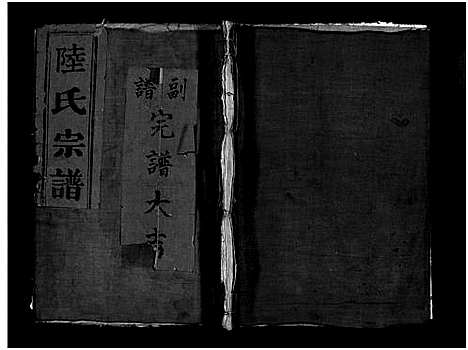 陸氏宗譜
副譜
完譜大吉